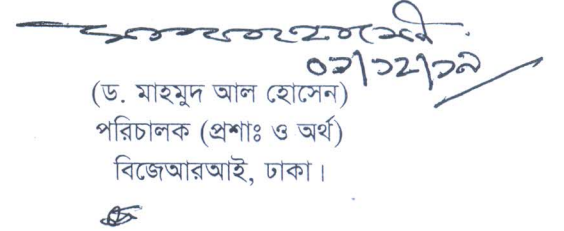 ০১/১২/১৯
(ড. মাহমুদ আল হোসেন)
পরিচালক (প্রশাঃ ও অর্থ)
বিজেআরআই, ঢাকা।